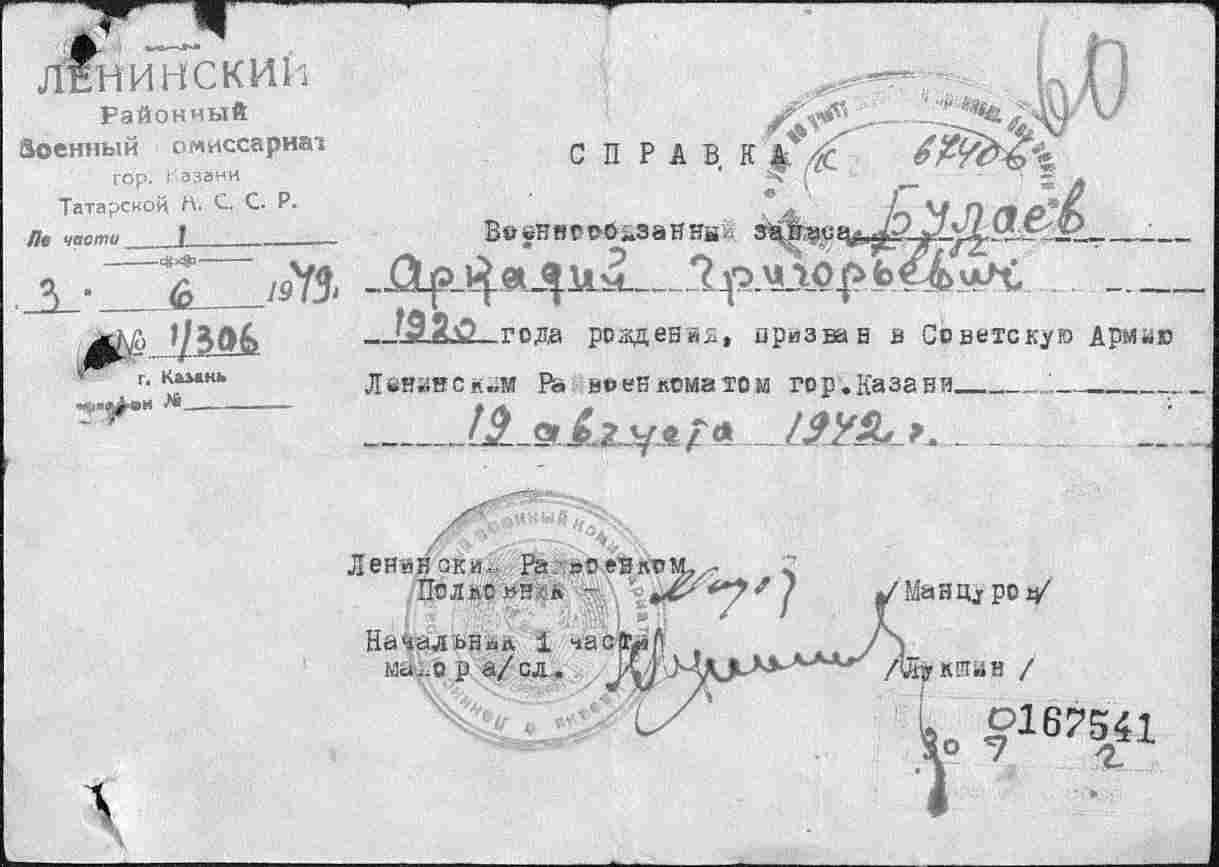 ЛЕНИНСКИЙ
Районный
Военный омиссариат
гор. Казани
Татарской А. С. С. Р.
По части 1
3. 6 1949.
№ 1/306
г. Казань
№
60
СПРАВКА
К 67406
Военнообязанный запаса Булаев
Аркадий Григорьевич
1920 года рождения, призван в Советскую Армию
Ленинским Райвоенкоматом гор.Казани
19 августа 1942 г.
Ленински Райвоенком
Полковник - /Манцуров/
Начальник 1 части
майор а/сл. /Лукшин/
0167541